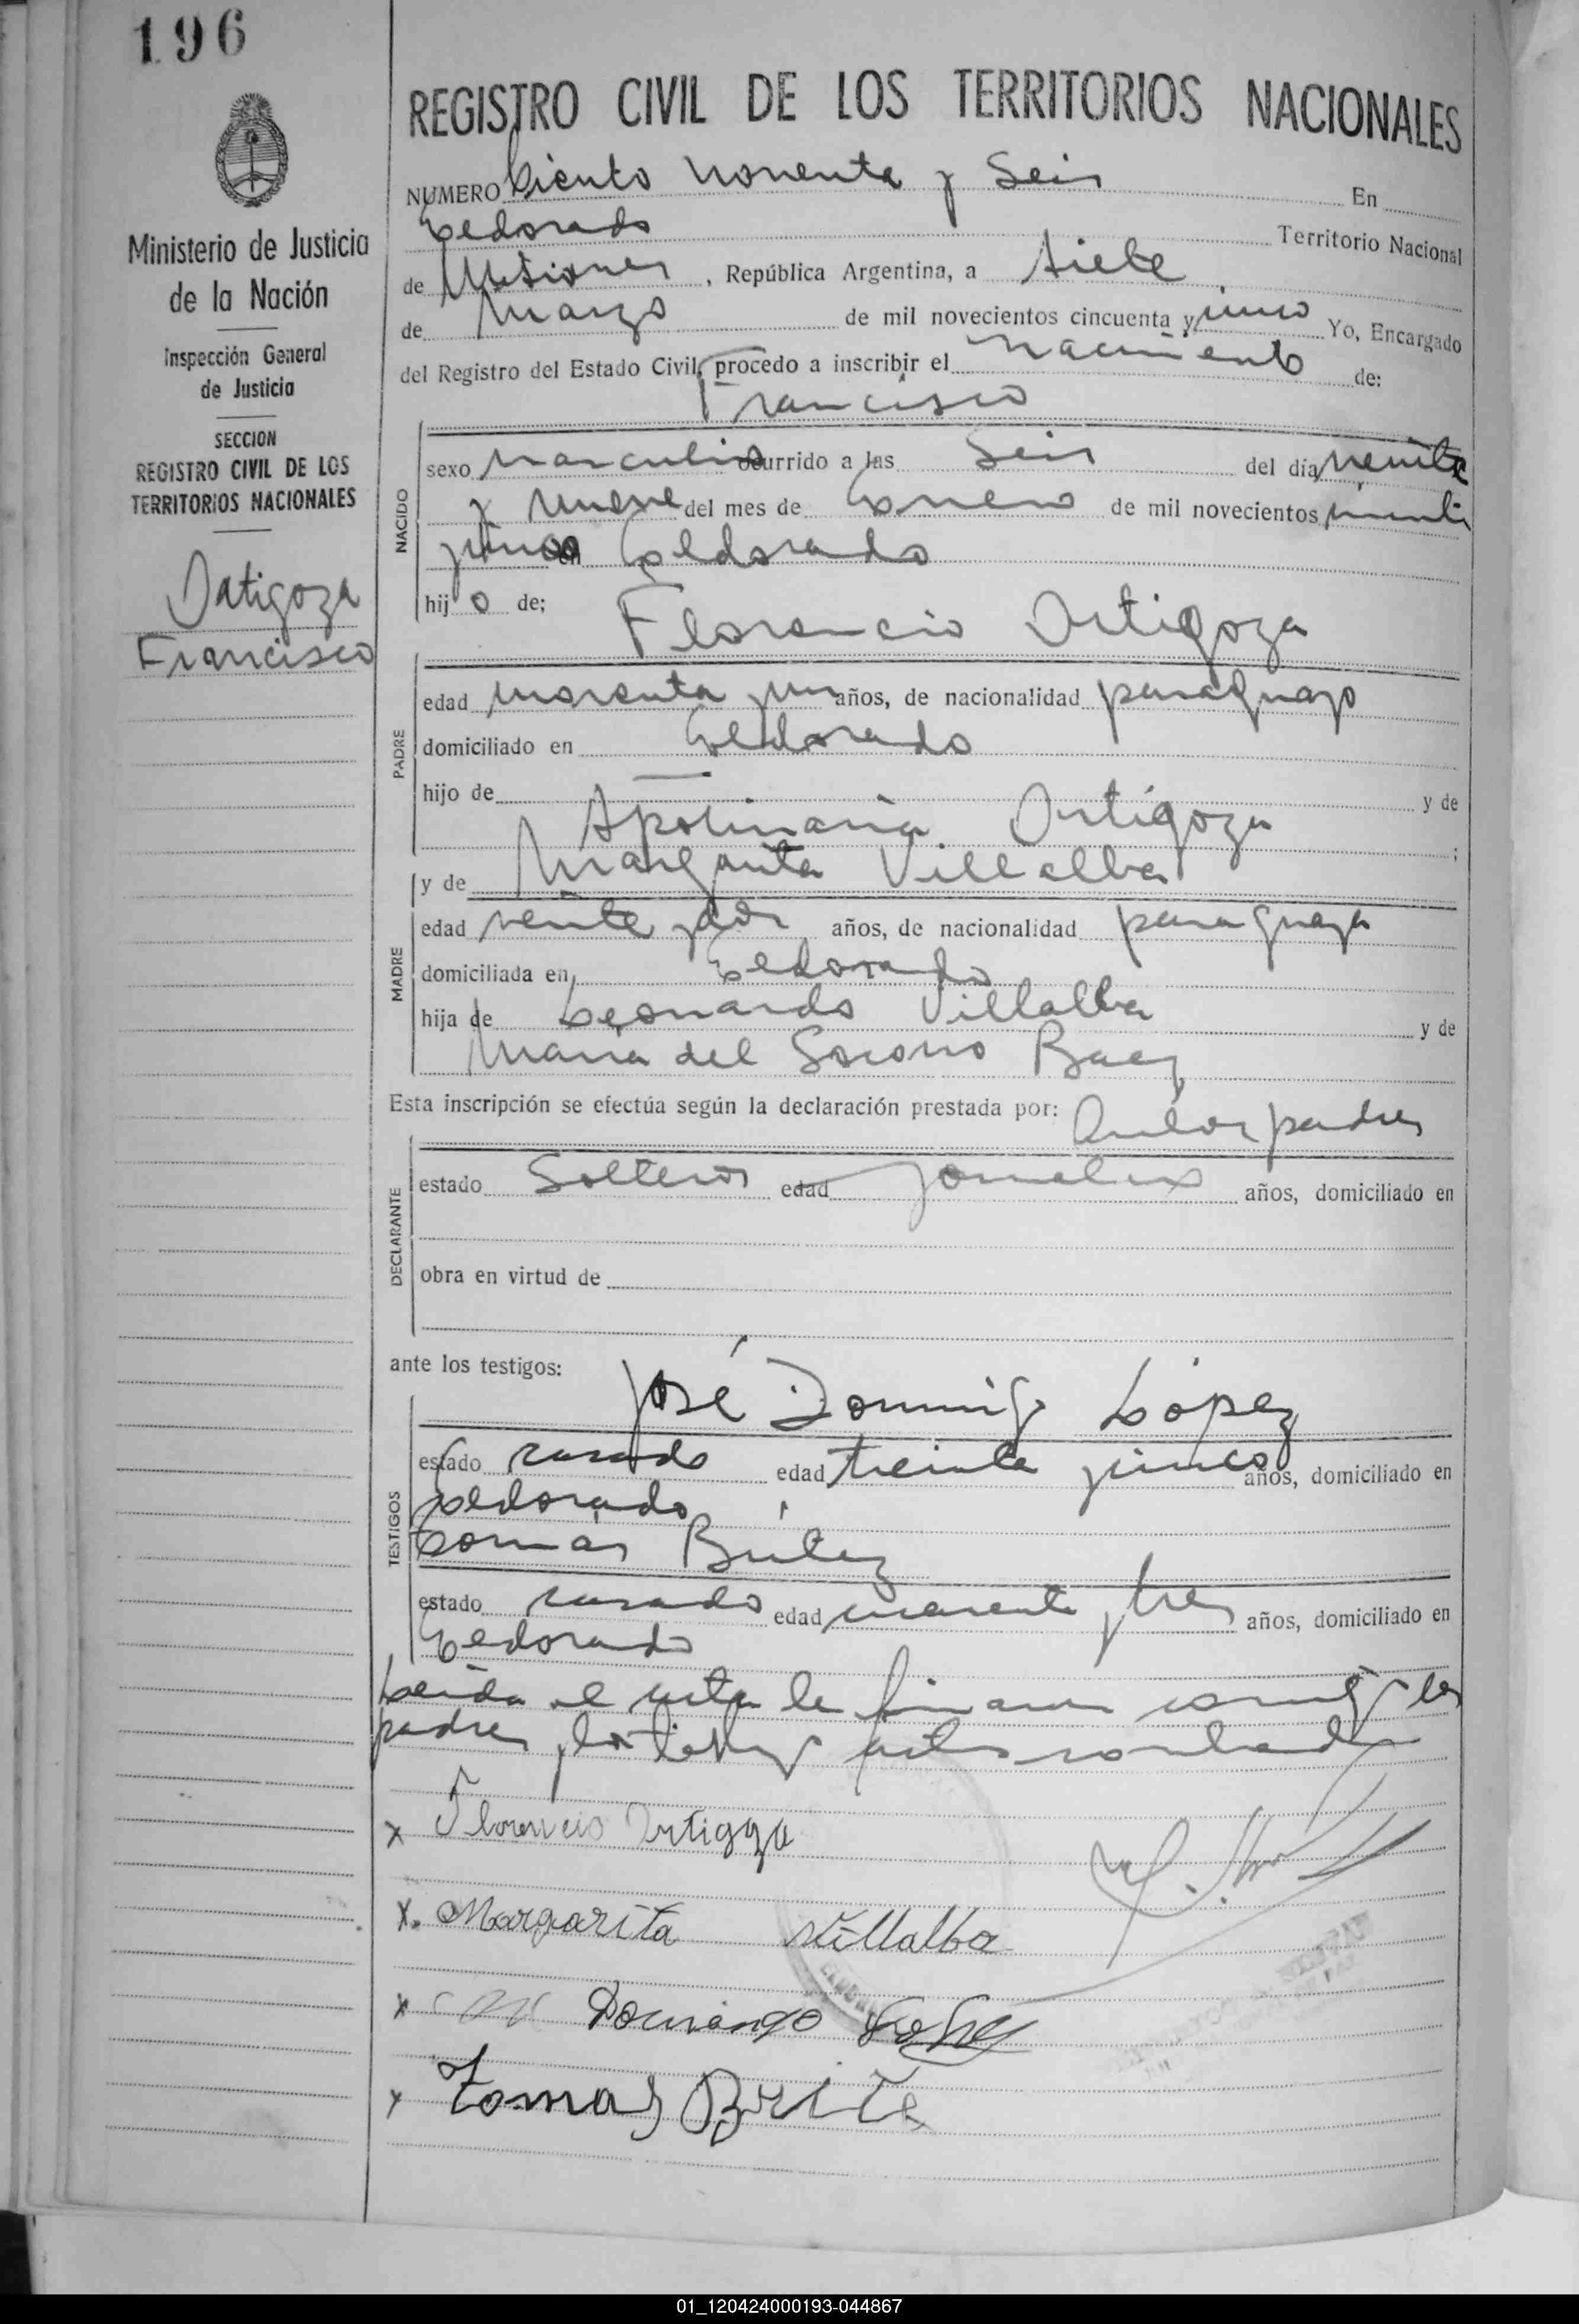 196
Ministerio de Justicia
de la Nación
Inspección General
de Justicia
SECCION
REGISTRO CIVIL DE LOS
TERRITORIOS NACIONALES
Ortigoza
Francisco
REGISTRO CIVIL DE LOS TERRITORIOS NACIONALES
NUMERO Ciento noventa y Seis En
Eldorado Territorio Nacional
de Misiones, República Argentina, a siete
de Marzo de mil novecientos cincuenta y cinco Yo, Encargado
del Registro del Estado Civil, procedo a inscribir el nacimiento de:
Francisco
NACIDO
sexo masculino ocurrido a las Seis del día veinte
y nueve del mes de Enero de mil novecientos
en Eldorado
hijo de; Florencio Ortigoza
PADRE
edad años, de nacionalidad paraguayo
domiciliado en Eldorado
hijo de — y de
Apolinaria Ortigoza ;
y de Margarita Villalba
MADRE
edad veinte y dos años, de nacionalidad paraguaya
domiciliada en Eldorado
hija de Leonardo Villalba y de
Maria del Socorro Baez
Esta inscripción se efectúa según la declaración prestada por: Ambos padres
DECLARANTE
estado Solteros edad años, domiciliado en
obra en virtud de
ante los testigos:
José Domingo López
TESTIGOS
estado casado edad treinta y cinco años, domiciliado en
Eldorado
Tomás Brítez
estado casado edad cuarenta y tres años, domiciliado en
Eldorado
Leida el acta la firman conmigo los
padres y los testigos
x Florencio Ortigoza
x. Margarita Villalba
x Domingo Lopez
x Tomas Brite
01_120424000193-044867